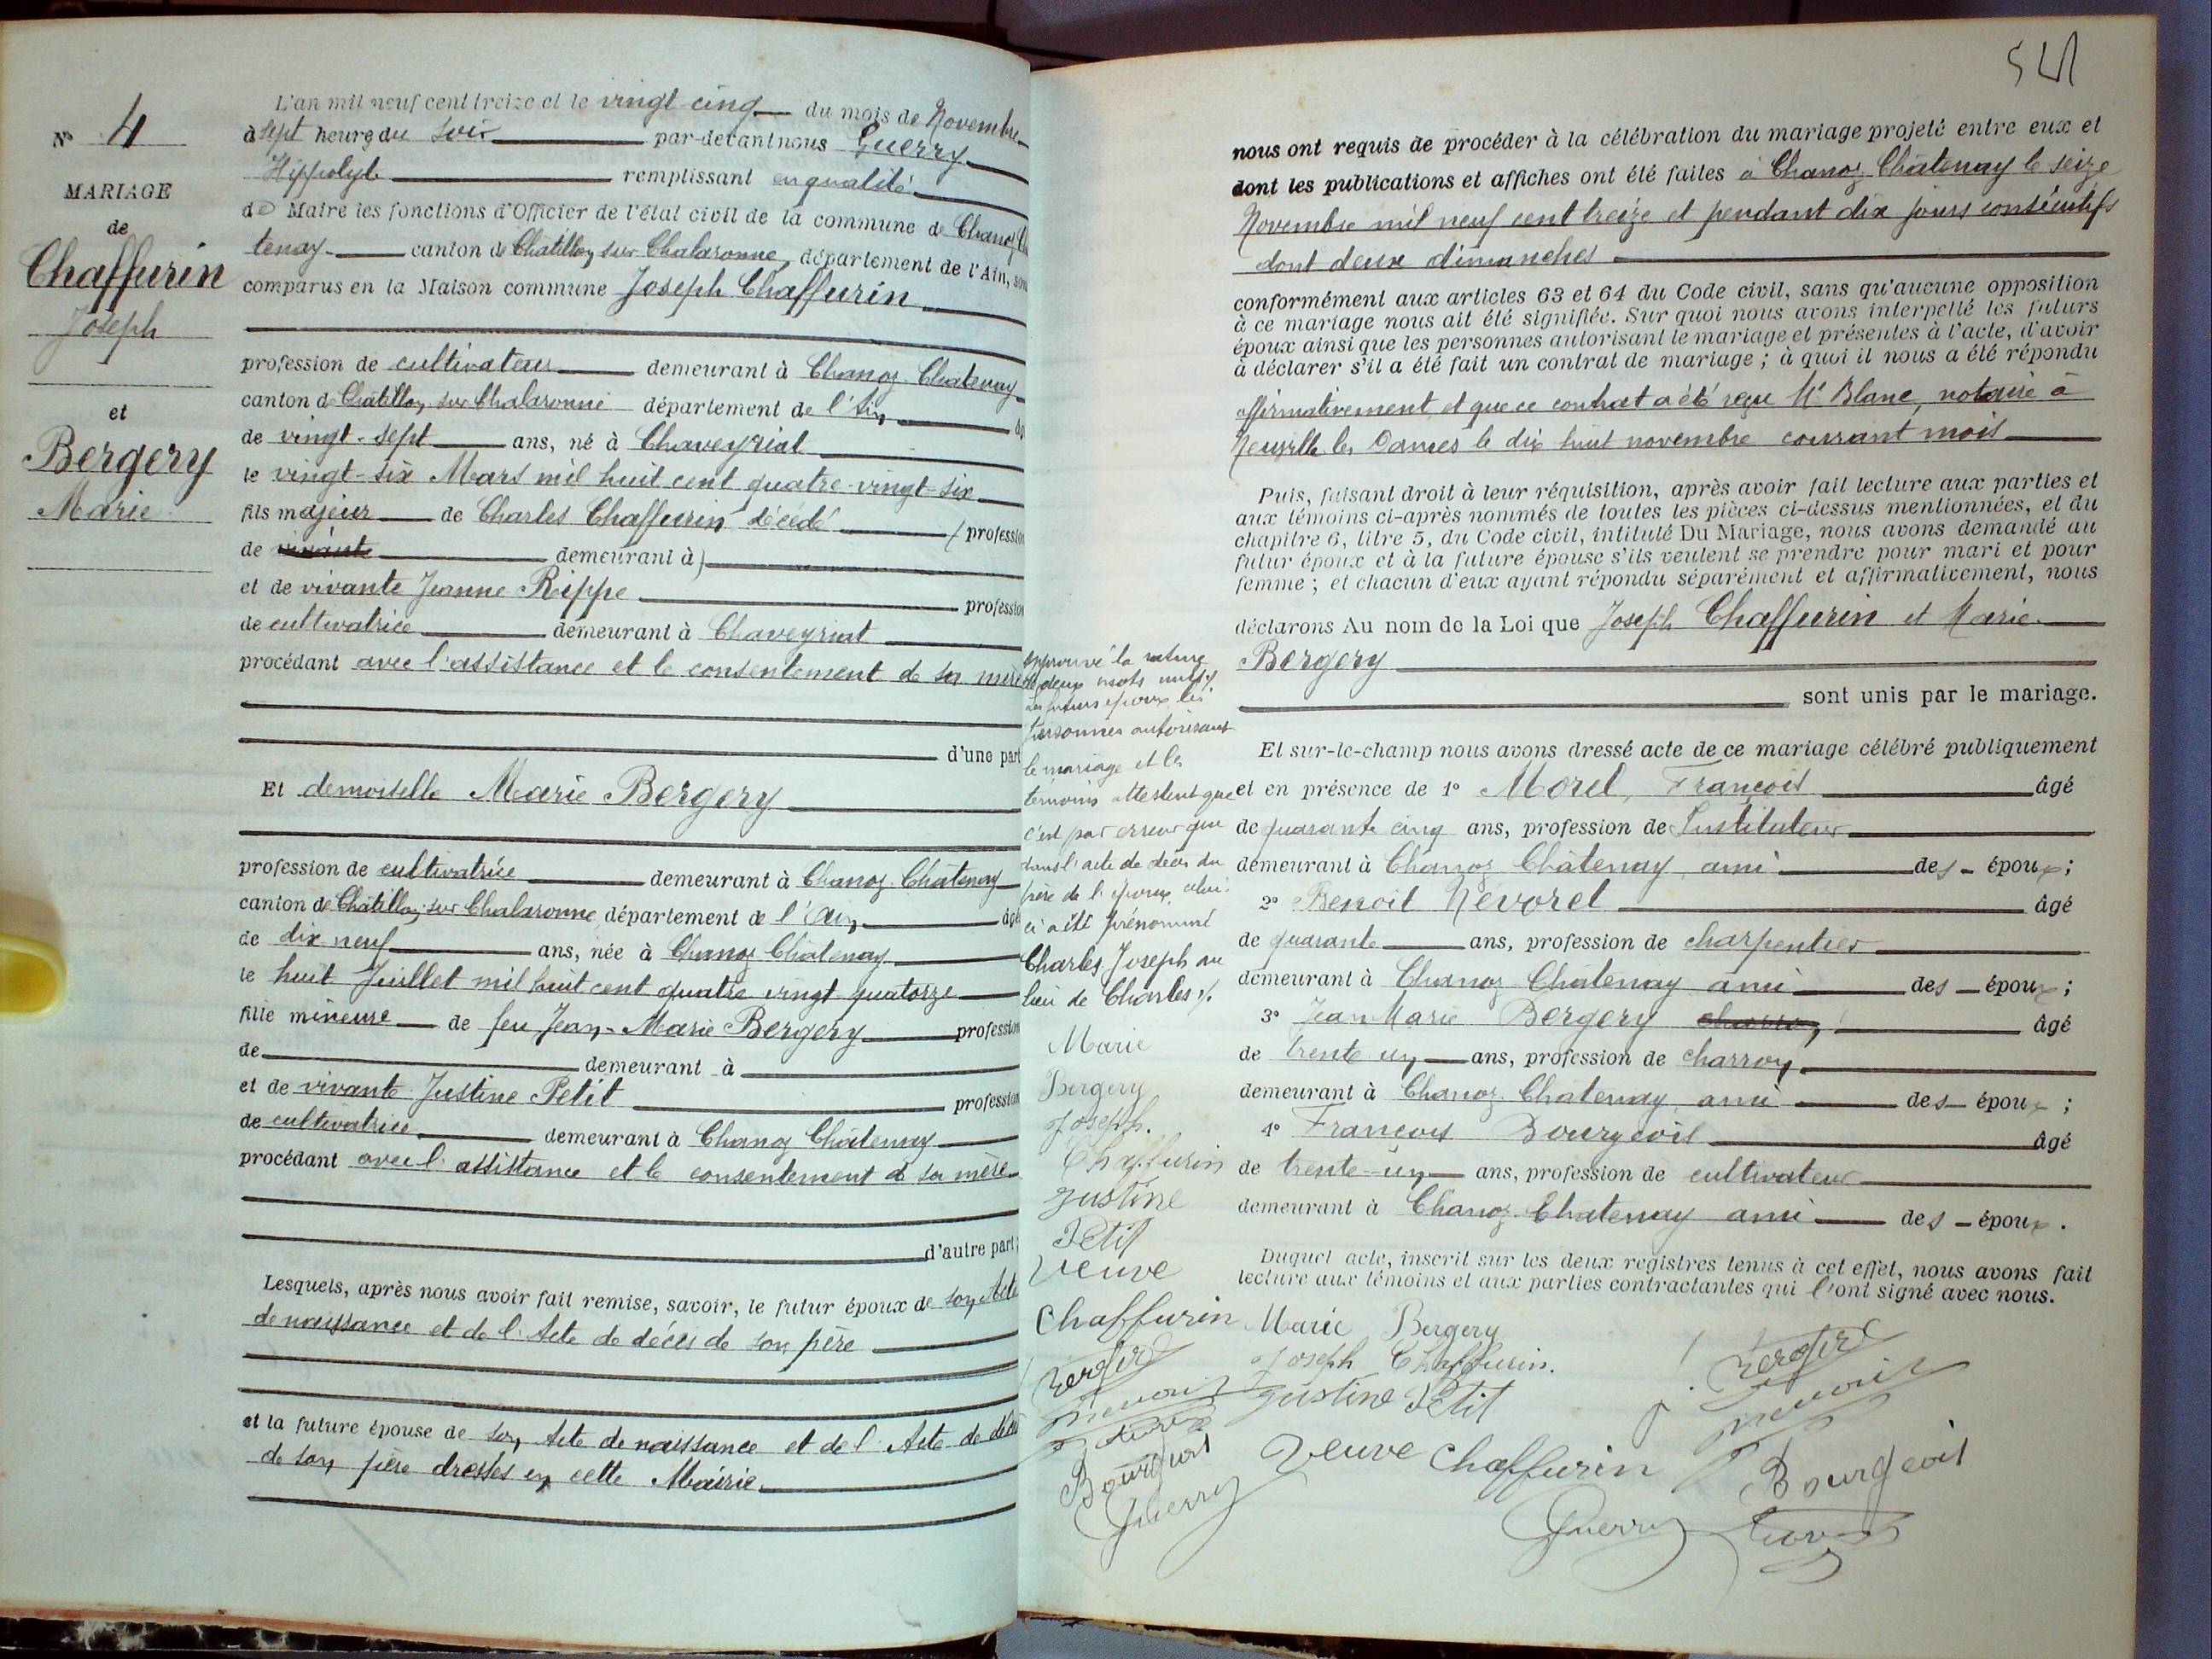 N° 4
MARIAGE
de
Chaffurin
Joseph
et
Bergery
Marie
L'an mil neuf cent treize et le vingt cinq du mois de Novembre
à sept heure du soir par-devant nous Guerry
Hippolyte remplissant en qualité
de Maire les fonctions d'Officier de l'état civil de la commune de Chanoz Châ
tenay canton de Châtillon sur Chalaronne, département de l'Ain, sont
comparus en la Maison commune Joseph Chaffurin
profession de cultivateur demeurant à Chanoz-Châtenay
canton de Châtillon sur Chalaronne département de l'Ain âgé
de vingt-sept ans, né à Chaveyriat
le vingt-six Mars mil huit cent quatre-vingt-six
fils majeur de Charles Chaffurin décédé profession
de vivante demeurant à
et de vivante Jeanne Rippe profession
de cultivatrice demeurant à Chaveyriat
procédant avec l'assistance et le consentement de sa mère
d'une part
Et demoiselle Marie Bergery
profession de cultivatrice demeurant à Chanoz-Châtenay
canton de Châtillon sur Chalaronne département de l'Ain âgé
de dix neuf ans, née à Chanoz Châtenay
le huit Juillet mil huit cent quatre vingt quatorze
fille mineure de feu Jean-Marie Bergery profession
de demeurant à
et de vivante Justine Petit profession
de cultivatrice demeurant à Chanoz Châtenay
procédant avec l'assistance et le consentement de sa mère
d'autre part;
Lesquels, après nous avoir fait remise, savoir, le futur époux de son Acte
de naissance et de l'Acte de décès de son père
et la future épouse de son Acte de naissance et de l'Acte de décès
de son père dressés en cette Mairie.
nous ont requis de procéder à la célébration du mariage projeté entre eux et
dont les publications et affiches ont été faites à Chanoz Châtenay le seize
Novembre mil neuf cent treize et pendant dix jours consécutifs
dont deux dimanches
conformément aux articles 63 et 64 du Code civil, sans qu'aucune opposition
à ce mariage nous ait été signifiée. Sur quoi nous avons interpellé les futurs
époux ainsi que les personnes autorisant le mariage et présentes à l'acte, d'avoir
à déclarer s'il a été fait un contrat de mariage ; à quoi il nous a été répondu
affirmativement et que ce contrat a été reçu Me Blanc, notaire à
Neuville les Dames le dix huit novembre courant mois
Puis, faisant droit à leur réquisition, après avoir fait lecture aux parties et
aux témoins ci-après nommés de toutes les pièces ci-dessus mentionnées, et du
chapitre 6, titre 5, du Code civil, intitulé Du Mariage, nous avons demandé au
futur époux et à la future épouse s'ils veulent se prendre pour mari et pour
femme ; et chacun d'eux ayant répondu séparément et affirmativement, nous
déclarons Au nom de la Loi que Joseph Chaffurin et Marie
Bergery
sont unis par le mariage.
Et sur-le-champ nous avons dressé acte de ce mariage célébré publiquement
et en présence de 1° Morel, François âgé
de quarante cinq ans, profession de Instituteur
demeurant à Chanoz Châtenay, ami des époux;
2° Benoit Névorel âgé
de quarante ans, profession de charpentier
demeurant à Chanoz-Châtenay ami des époux;
3° Jean Marie Bergery charron, âgé
de trente un ans, profession de charron
demeurant à Chanoz-Châtenay, ami des époux ;
4° François Bourgeois âgé
de trente-un ans, profession de cultivateur
demeurant à Chanoz-Châtenay ami des époux.
Duquel acte, inscrit sur les deux registres tenus à cet effet, nous avons fait
lecture aux témoins et aux parties contractantes qui l'ont signé avec nous.
Marie Bergery
Joseph Chaffurin.
justine Petit
Veuve Chaffurin
Bourgeois
Guerry
Approuvé la rature
de deux mots nuls
Les futurs époux, les
personnes autorisant
le mariage et les
témoins attestent que
c'est par erreur que
dans l'acte de décès du
père de l'époux, celui-
ci a été prénommé
Charles Joseph au
lieu de Charles
Marie
Bergery
Joseph.
Chaffurin
justine
Petit
Veuve
Chaffurin
Bourgeois
Guerry